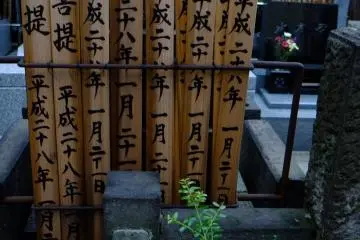 平成二十八年 一月
平成二十八年 一月
平成二十八年 一月
平成二十八年 一月二十
平成二十八年 一月二十一日
菩提 平成二十八年 一月
提 平成二十八年 一月